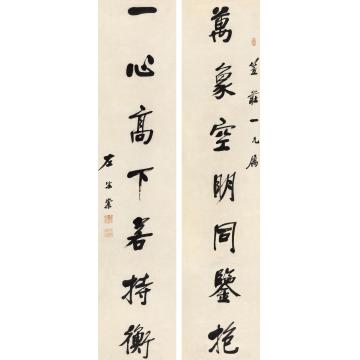 笠莊一兄屬
萬象空明同鑒抱
一心高下若持衡
左宗棠